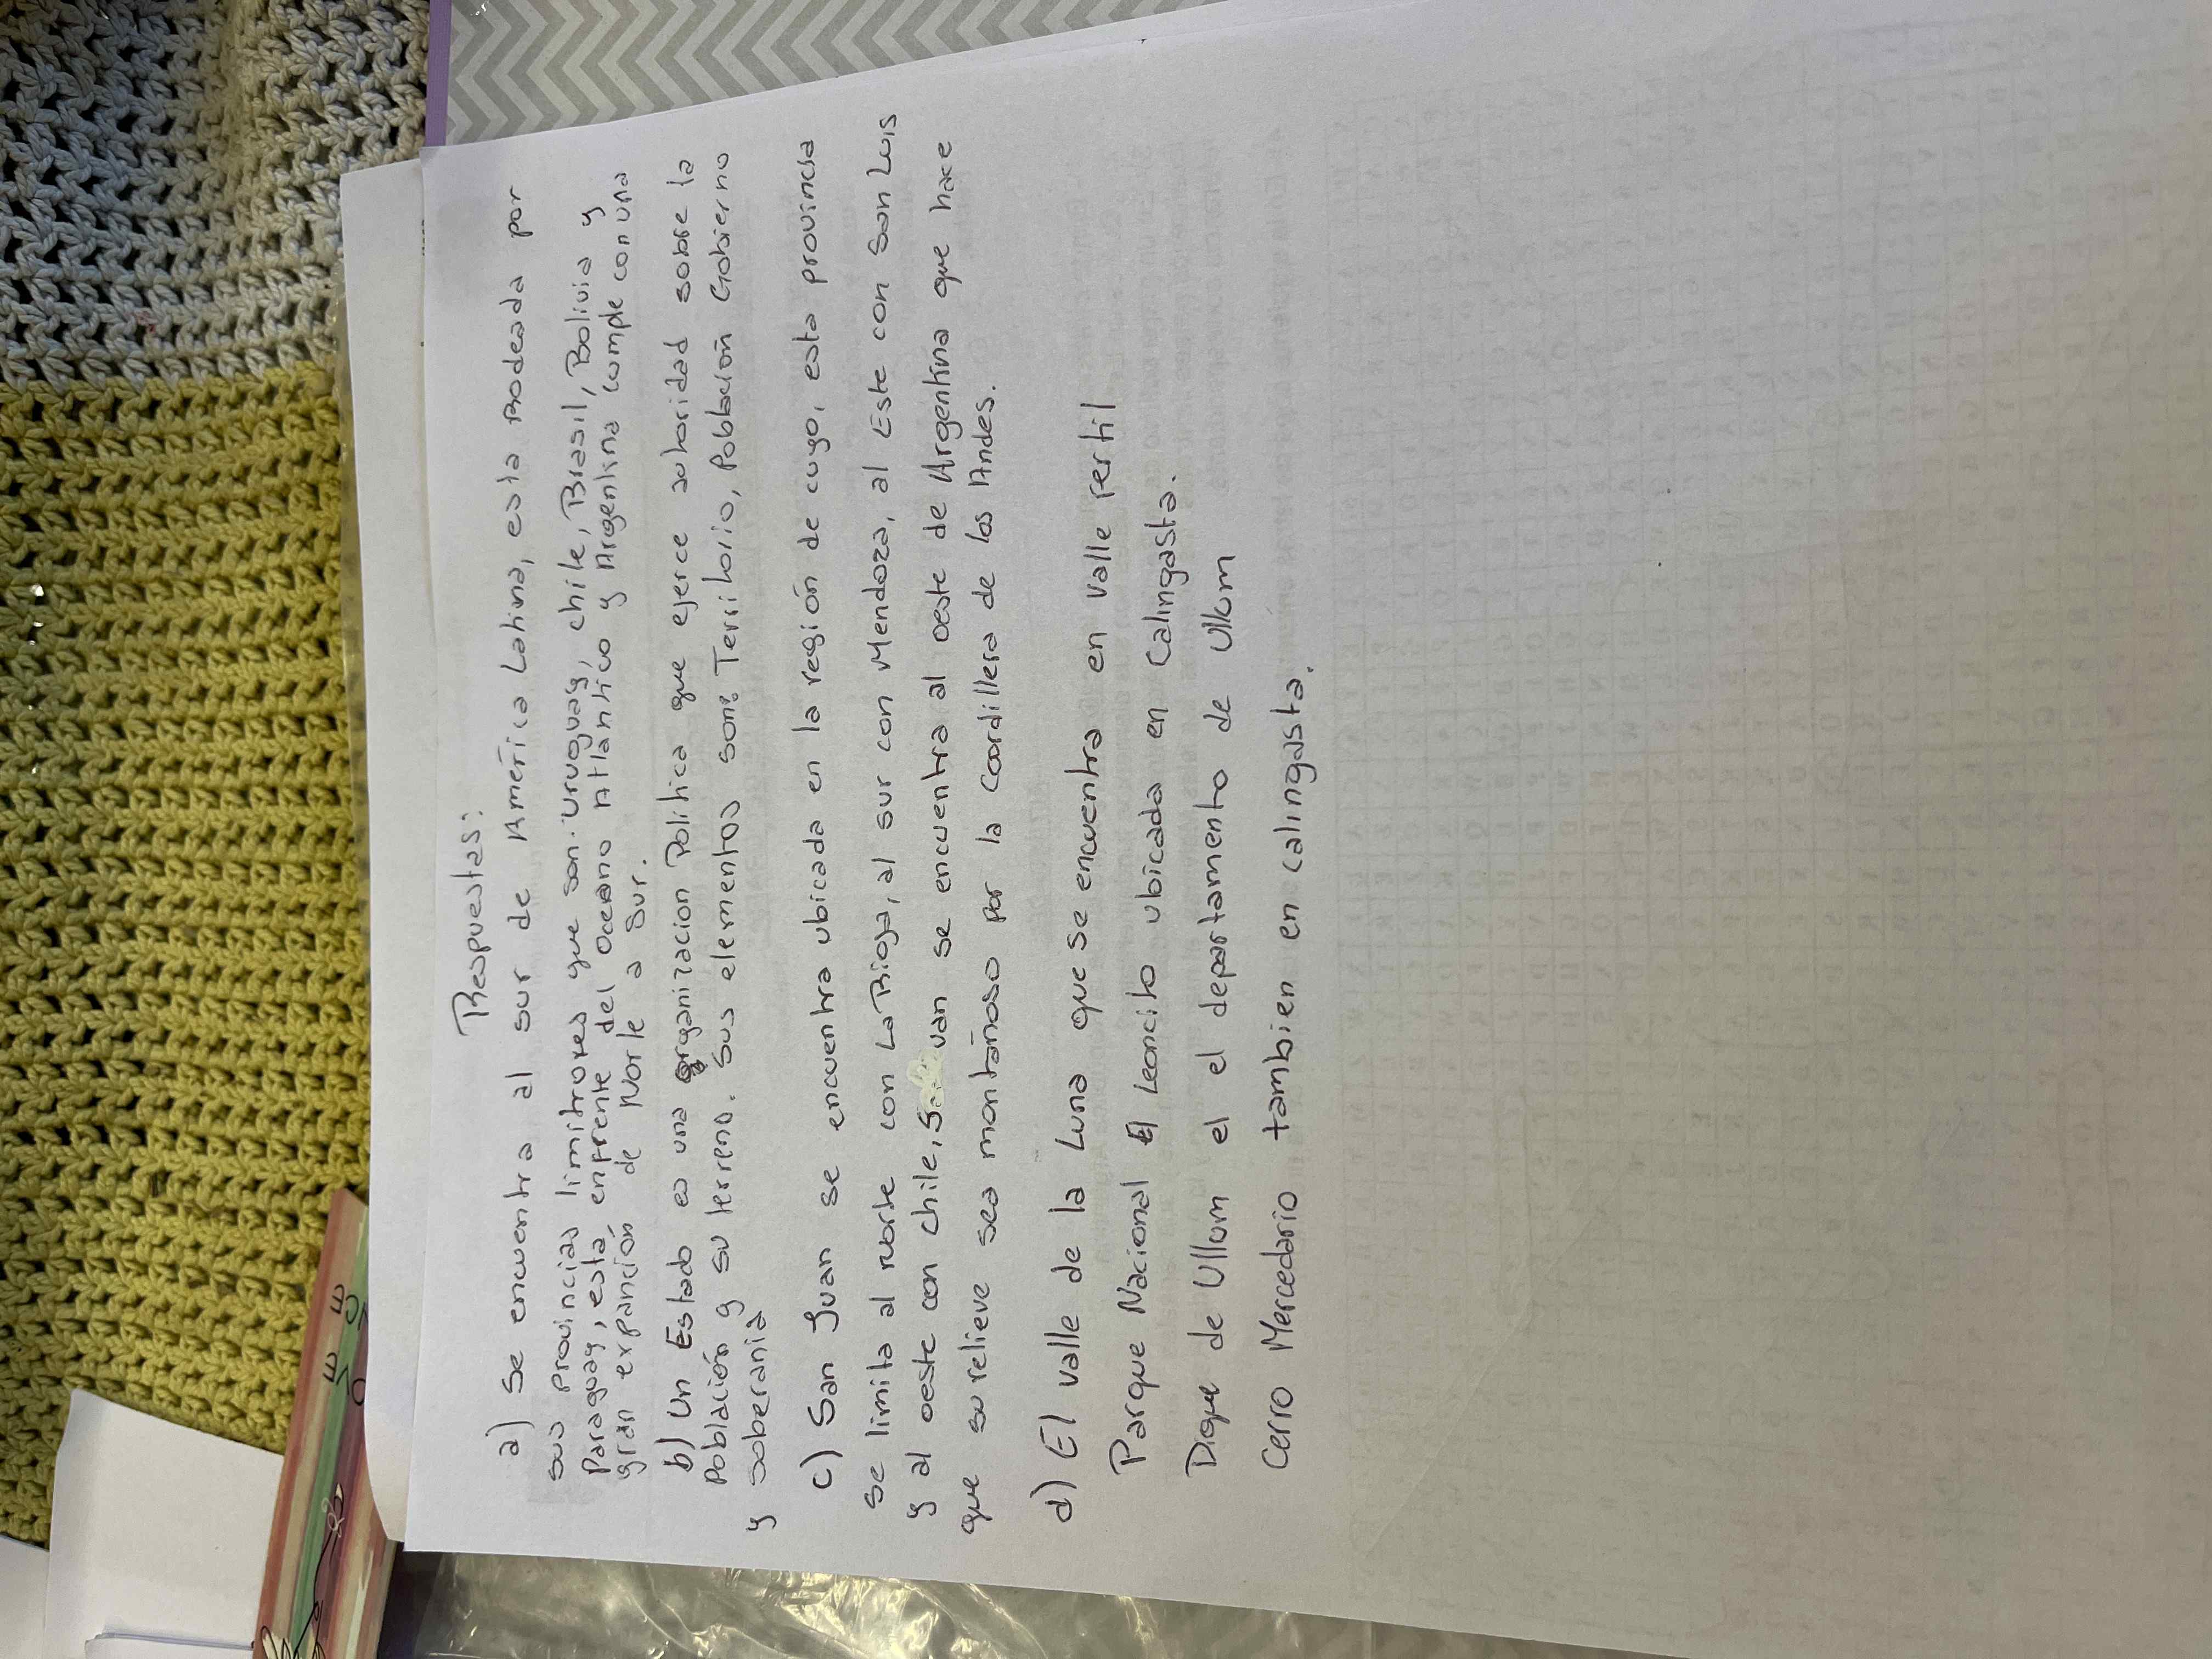 Respuestas:
a) Se encuentra al sur de América Latina, esta rodeada por
sus provincias limitrofes que son: Uruguay, chile, Brasil, Bolivia y
Paraguay, esta enfrente del Oceano Atlantico y Argentina cumple con una
gran expanción de Norte a Sur.
b) Un Estado es una organizacion Politica que ejerce autoridad sobre la
Población y su terreno. Sus elementos son: Territorio, Población Gobierno
y soberania
c) San Juan se encuentra ubicada en la región de cuyo, esta provincia
se limita al norte con La Rioja, al sur con Mendoza, al Este con San Luis
y al oeste con chile, Juan se encuentra al oeste de Argentina que hace
que su relieve sea montañoso por la Cordillera de los Andes.
d) El valle de la Luna que se encuentra en valle fertil
Parque Nacional El Leoncito ubicada en Calingasta.
Dique de Ullum el el departamento de Ullum
Cerro Mercedario tambien en calingasta.